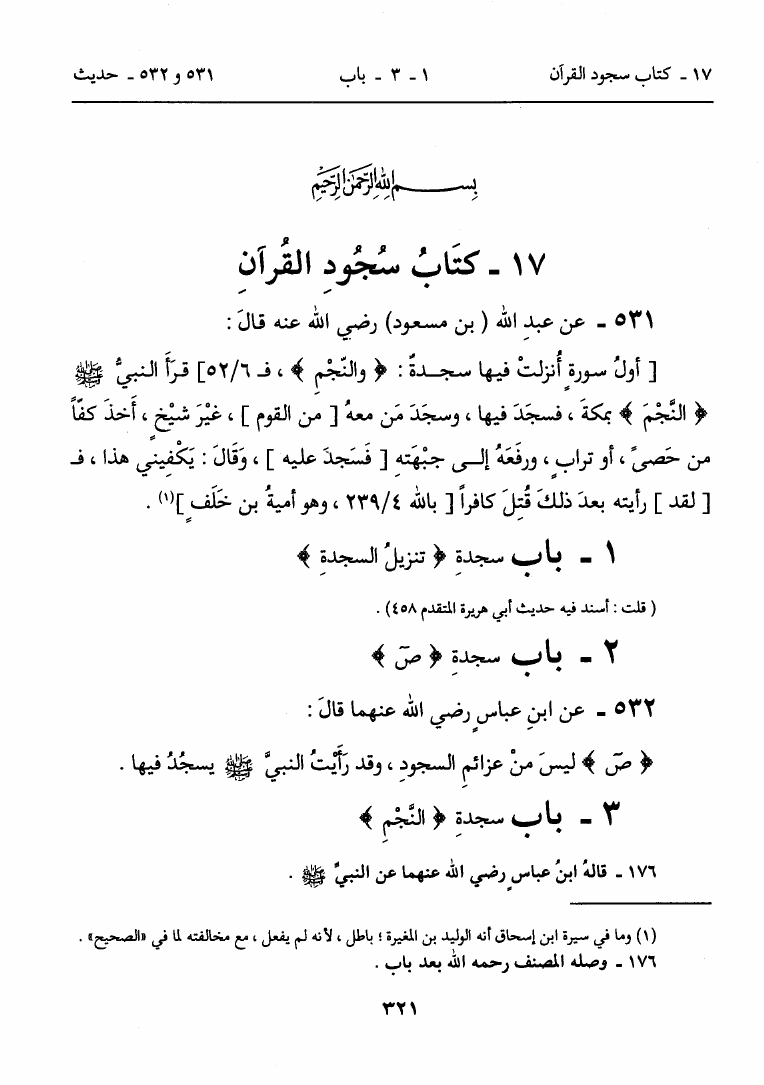 ١٧ ـ كتاب سجود القرآن ١ ـ ٣ ـ باب ٥٣١ و ٥٣٢ ـ حديث
بسم الله الرحمن الرحيم
١٧ ـ كتَابُ سُجُودِ القُرآنِ
٥٣١ ـ عن عبدِ الله ( بن مسعود) رضي الله عنه قالَ :
[ أولُ سورةٍ أُنزلتْ فيها سجـدةٌ : ﴿ والنّجْمِ ﴾ ، فـ ٥٢/٦] قـرَأَ النبيُّ ﷺ
﴿ النَّجْمَ ﴾ بمكةَ ، فسجَدَ فيها ، وسجَدَ مَن معهُ [ من القوم ] ، غيْرَ شيْخٍ ، أخذَ كفّاً
من حَصىً ، أو ترابٍ ، ورفَعَهُ إلـى جبْهَتهِ [ فَسَجدَ عليه ] ، وقَالَ : يَكْفِيني هذا ، فـ
[ لقد ] رأيته بعدَ ذلكَ قُتِلَ كافراً [ بالله ٢٣٩/٤ ، وهو أميةُ بن خَلَفٍ ](١) .
١ ـ باب سجدةِ ﴿ تنزيلُ السجدةِ ﴾
( قلت : أسند فيه حديث أبي هريرة المتقدم ٤٥٨) .
٢ ـ باب سجدةِ ﴿ صَ ﴾
٥٣٢ ـ عن ابنِ عباسٍ رضي الله عنهما قالَ :
﴿ صَ ﴾ ليسَ منْ عزائمِ السجودِ ، وقد رَأَيْتُ النبيَّ ﷺ يسجُدُ فيها .
٣ ـ باب سجدةِ ﴿ النَّجْمِ ﴾
١٧٦ ـ قالهُ ابنُ عباسٍ رضي الله عنهما عن النبيِّ ﷺ .
(١) وما في سيرة ابن إسحاق أنه الوليد بن المغيرة ؛ باطل ، لأنه لم يفعل ، مع مخالفته لما في «الصحيح» .
١٧٦ ـ وصله المصنف رحمه الله بعد باب .
٣٢١